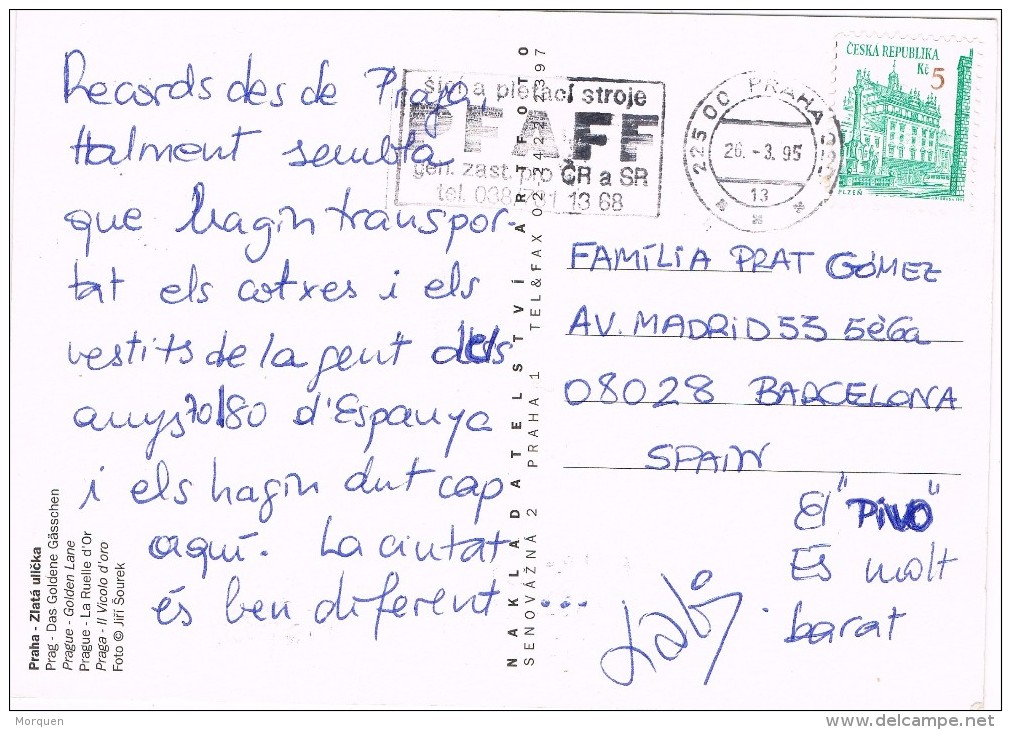 Records des de Praga,
ttalment sembla
que hagin transpor-
tat els cotxes i els
vestits de la gent dels
anys 70/80 d'Espanya
i els hagin dut cap
aquí. La ciutat
és ben diferent ...
šicí a pletací stroje
PFAFF
gen. zast. pro ČR a SR
tel. 038/ 21 13 68
225 00 PRAHA 025
26. -3. 95
13
ČESKÁ REPUBLIKA
Kč 5
PLZEŇ
FAMÍLIA PRAT GÓMEZ
AV. MADRID 53 5è6a
08028 BARCELONA
SPAIN
El "PIVO"
És molt
barat
NAKLADATELSTVÍ ARFOTO
SENOVÁŽNÁ 2 PRAHA 1 TEL&FAX 02 24222397
Praha - Zlatá ulička
Prag - Das Goldene Gässchen
Prague - Golden Lane
Prague - La Ruelle d'Or
Praga - Il Vicolo d'oro
Foto © Jiří Šourek
Morquen
delcampe.net